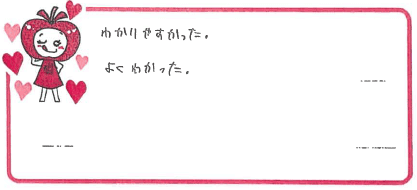 わかりやすかった。
よくわかった。